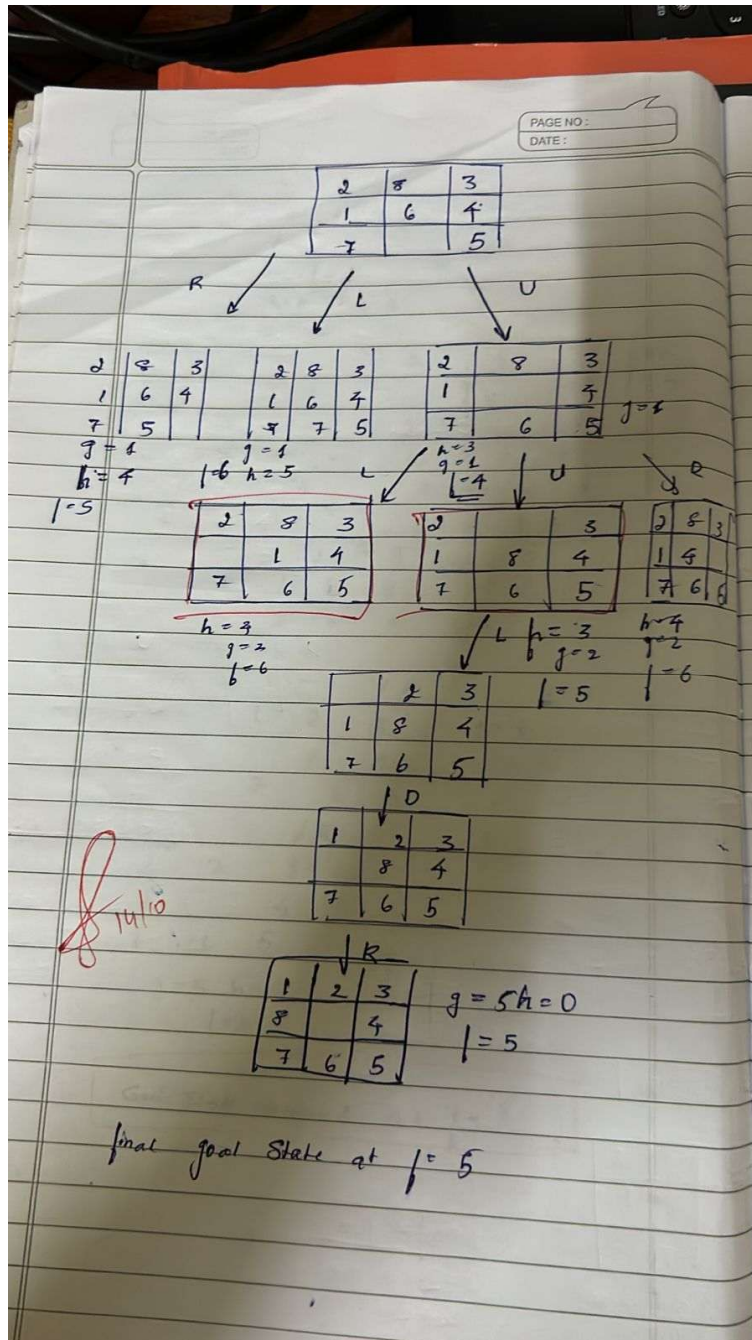 PAGE NO :
DATE :
2 8 3
1 6 4
7 5
R L U
2 8 3
1 6 4
7 5
g = 1
h = 4
f = 5
2 8 3
1 6 4
7 7 5
g = 1
f=6 h=5
2 8 3
1 4
7 6 5
g=1
h=3
g=1
f=4
L U R
2 8 3
1 4
7 6 5
g=2
f=6
2 3
1 8 4
7 6 5
h = 3
g=2
f = 5
2 8 3
1 4
7 6
h=4
g=2
f=6
L
2 3
1 8 4
7 6 5
D
1 2 3
8 4
7 6 5
R
1 2 3
8 4
7 6 5
g = 5 h = 0
f = 5
14/10
final goal State at f = 5